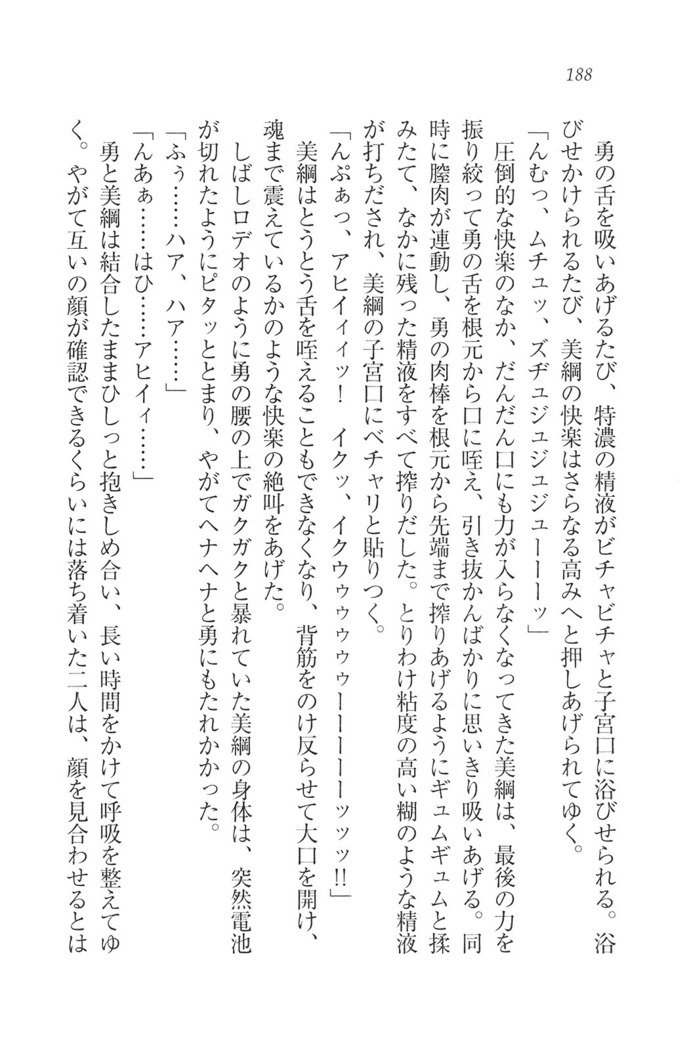 188
勇の舌を吸いあげるたび、特濃の精液がビチャビチャと子宮口に浴びせられる。浴
びせかけられるたび、美綱の快楽はさらなる高みへと押しあげられてゆく。
「んむっ、ムチュッ、ズヂュジュジュジューーーッ」
圧倒的な快楽のなか、だんだん口にも力が入らなくなってきた美綱は、最後の力を
振り絞って勇の舌を根元から口に咥え、引き抜かんばかりに思いきり吸いあげる。同
時に膣肉が連動し、勇の肉棒を根元から先端まで搾りあげるようにギュムギュムと揉
みたて、なかに残った精液をすべて搾りだした。とりわけ粘度の高い糊のような精液
が打ちだされ、美綱の子宮口にベチャリと貼りつく。
「んぷぁっ、アヒイィィッ！　イクッ、イクウゥゥゥゥゥーーーーーッッッ!!」
美綱はとうとう舌を咥えることもできなくなり、背筋をのけ反らせて大口を開け、
魂まで震えているかのような快楽の絶叫をあげた。
しばしロデオのように勇の腰の上でガクガクと暴れていた美綱の身体は、突然電池
が切れたようにピタッととまり、やがてヘナヘナと勇にもたれかかった。
「ふぅ……ハア、ハア……」
「んあぁ……はひ……アヒイィ……」
勇と美綱は結合したままひしっと抱きしめ合い、長い時間をかけて呼吸を整えてゆ
く。やがて互いの顔が確認できるくらいには落ち着いた二人は、顔を見合わせるとは